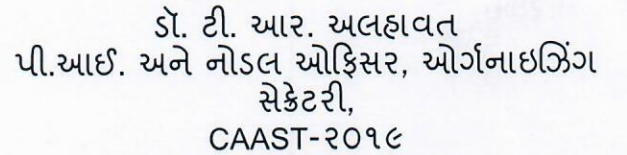 ડૉ. ટી. આર. અલહાવત
પી.આઈ. અને નોડલ ઓફિસર, ઓર્ગનાઇઝિંગ
સેક્રેટરી,
CAAST-૨૦૧૯